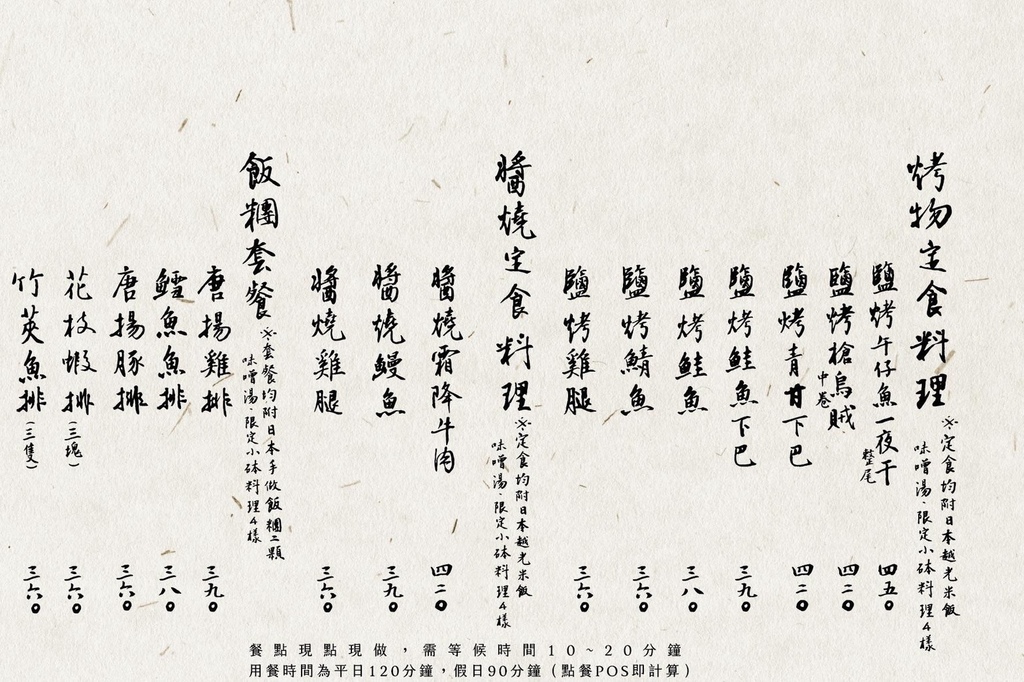 烤物定食料理
※定食均附日本越光米飯
味噌湯、限定小砵料理4樣
鹽烤午仔魚一夜干
整尾
四五〇
鹽烤槍烏賊
中卷
四二〇
鹽烤青甘下巴
四二〇
鹽烤鮭魚下巴
三九〇
鹽烤鮭魚
三八〇
鹽烤鯖魚
三六〇
鹽烤雞腿
三六〇
醬燒定食料理
※定食均附日本越光米飯
味噌湯、限定小砵料理4樣
醬燒霜降牛肉
四二〇
醬燒鰻魚
三九〇
醬燒雞腿
三六〇
飯糰套餐
※套餐均附日本手做飯糰二顆
味噌湯、限定小砵料理4樣
唐揚雞排
三九〇
鱈魚魚排
三八〇
唐揚豚排
三六〇
花枝蝦排(三塊)
三六〇
竹莢魚排(三隻)
三六〇
餐點現點現做，需等候時間10~20分鐘
用餐時間為平日120分鐘，假日90分鐘（點餐POS即計算）